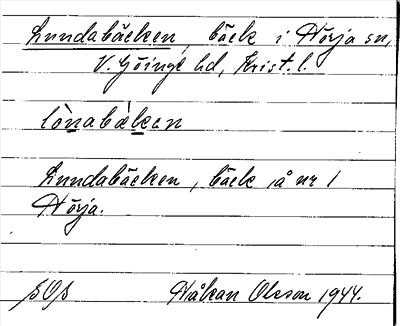 Lundabäcken, bäck i Nörja sn,
V. Göinge hd, Krist. l.
lònabæken
Lundabäcken, bäck, å nr 1
Nörja.
SOS Håkan Olsson 1944.